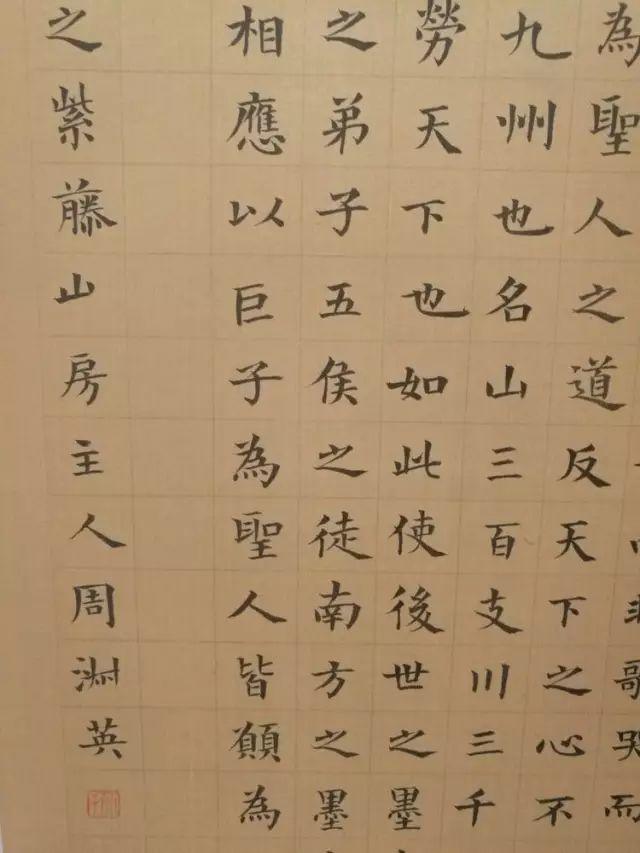 歌哭而
為聖人之道反天下之心不
九州也名山三百支川三千
勞天下也如此使後世之墨
之弟子五侯之徒南方之墨
相應以巨子為聖人皆願為
之紫藤山房主人周淵英